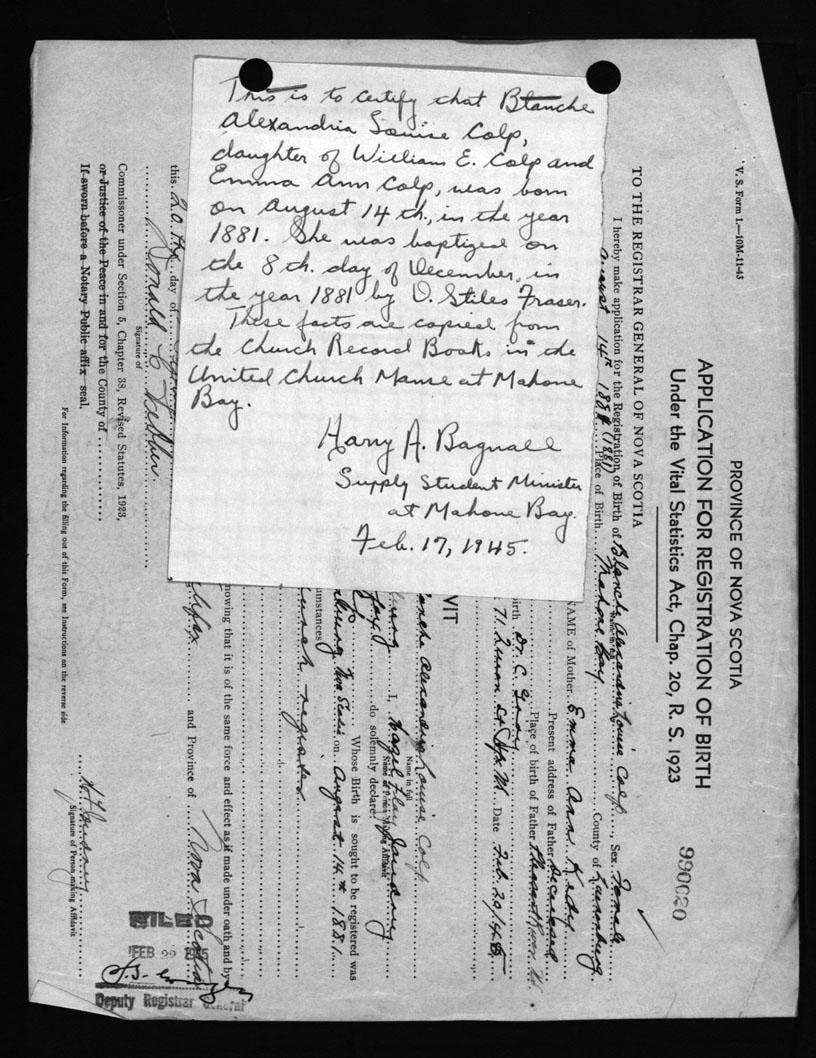 This is to certify that Blanche
Alexandria Louise Colp,
daughter of William E. Colp and
Emma Ann Colp, was born
on August 14th., in the year
1881. She was baptized on
the 8th. day of December, in
the year 1881 by D. Stiles Fraser.
These facts are copied from
the Church Record Books in the
United Church Manse at Mahone
Bay.
Harry A. Bagnall
Supply Student Minister
at Mahone Bay.
Feb. 17, 1945.
V. S. Form 1.—10M-11-43
PROVINCE OF NOVA SCOTIA
990020
APPLICATION FOR REGISTRATION OF BIRTH
Under the Vital Statistics Act, Chap. 20, R. S. 1923
TO THE REGISTRAR GENERAL OF NOVA SCOTIA
I hereby make application for the Registration of Birth of Blanche Alexandria Louise Colp, Sex Female
August 14th 1881 (1881) Place of Birth Mahone Bay County of Lunenburg
NAME of Mother Emma Ann
Present address of Father Deceased
Place of birth of Father Pleasant River
irth Dr. C. Gray
71 St. Date Feb. 20/45
VIT
anche Alexandria Louise Colp
Name in full
burg I, Hazel
Name of Person Making Affidavit
fax do solemnly declare:
Whose Birth is sought to be registered was
Nova Scotia on August 14th 1881
umstances
nowing that it is of the same force and effect as if made under oath and by
lifax and Province of Nova Scotia
this 20th day of
Signature of
Donald C.
Commissioner under Section 5, Chapter 38, Revised Statutes, 1923,
or Justice of the Peace in and for the County of
If sworn before a Notary Public affix seal.
Signature of Person making Affidavit
For Information regarding the filling out of this Form, see Instructions on the reverse side
FILED
FEB 22 1945
Deputy Registrar General